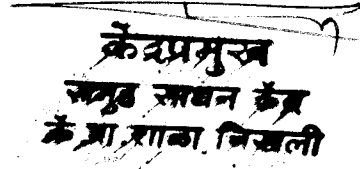 केंद्रप्रमुख
समुह साधन केंद्र
कें.प्रा.शाळा. चिखली